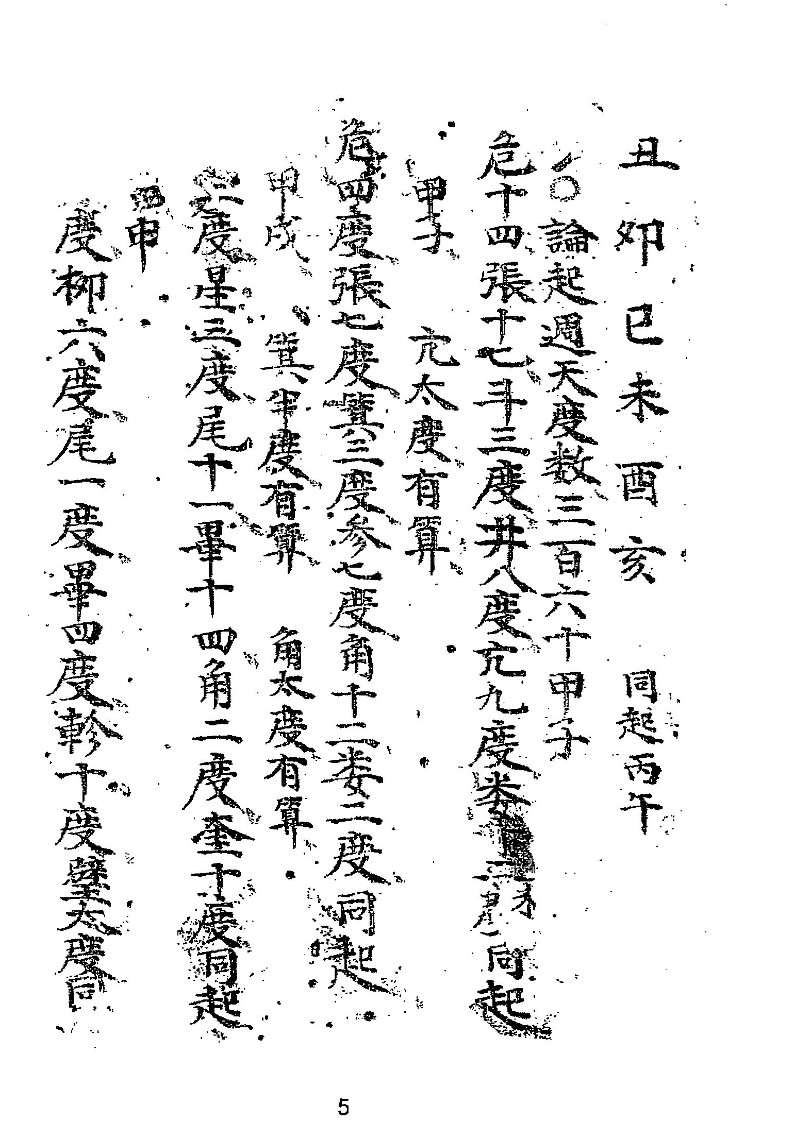 丑卯巳未酉亥 同起丙午
○論起週天度数三百六十甲子
危十四張十七斗三度井八度亢九度娄 同起
甲子 亢太度有算
危四度張七度箕三度参七度角十二娄二度同起
甲戌 箕半度有算 角太度有算
度星三度尾十一畢十四角二度奎十度同起
申
度柳六度尾一度畢四度軫十度壁太度同
5